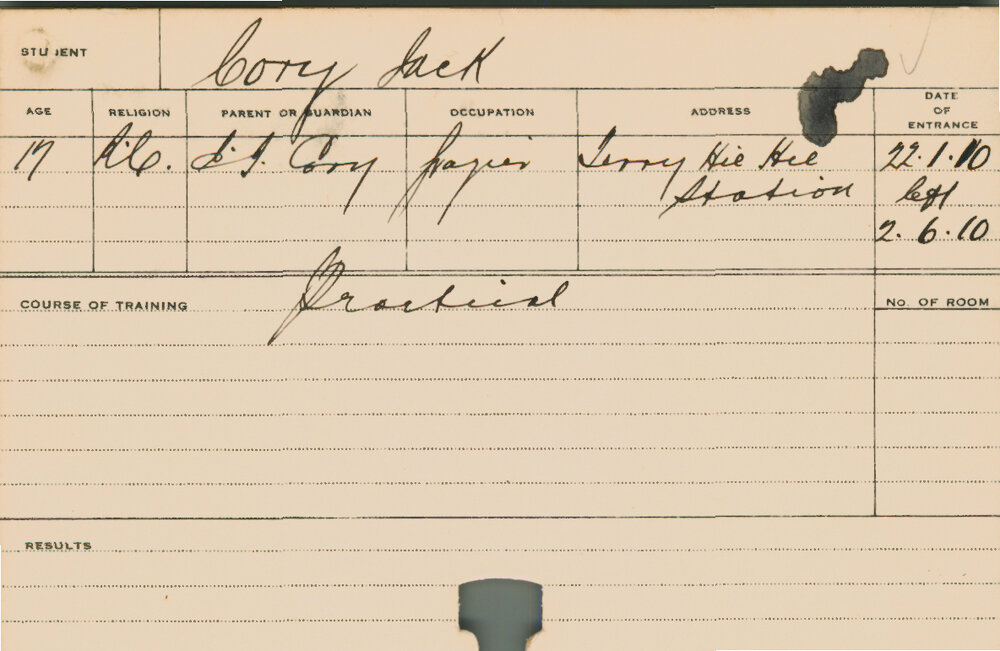 STUDENT Cory Jack
AGE RELIGION PARENT OR GUARDIAN OCCUPATION ADDRESS DATE OF ENTRANCE
17 R.C. Cory Grazier Terry Hie Hie 22.1.10
Station left
2.6.10
COURSE OF TRAINING Practical No. OF ROOM
RESULTS